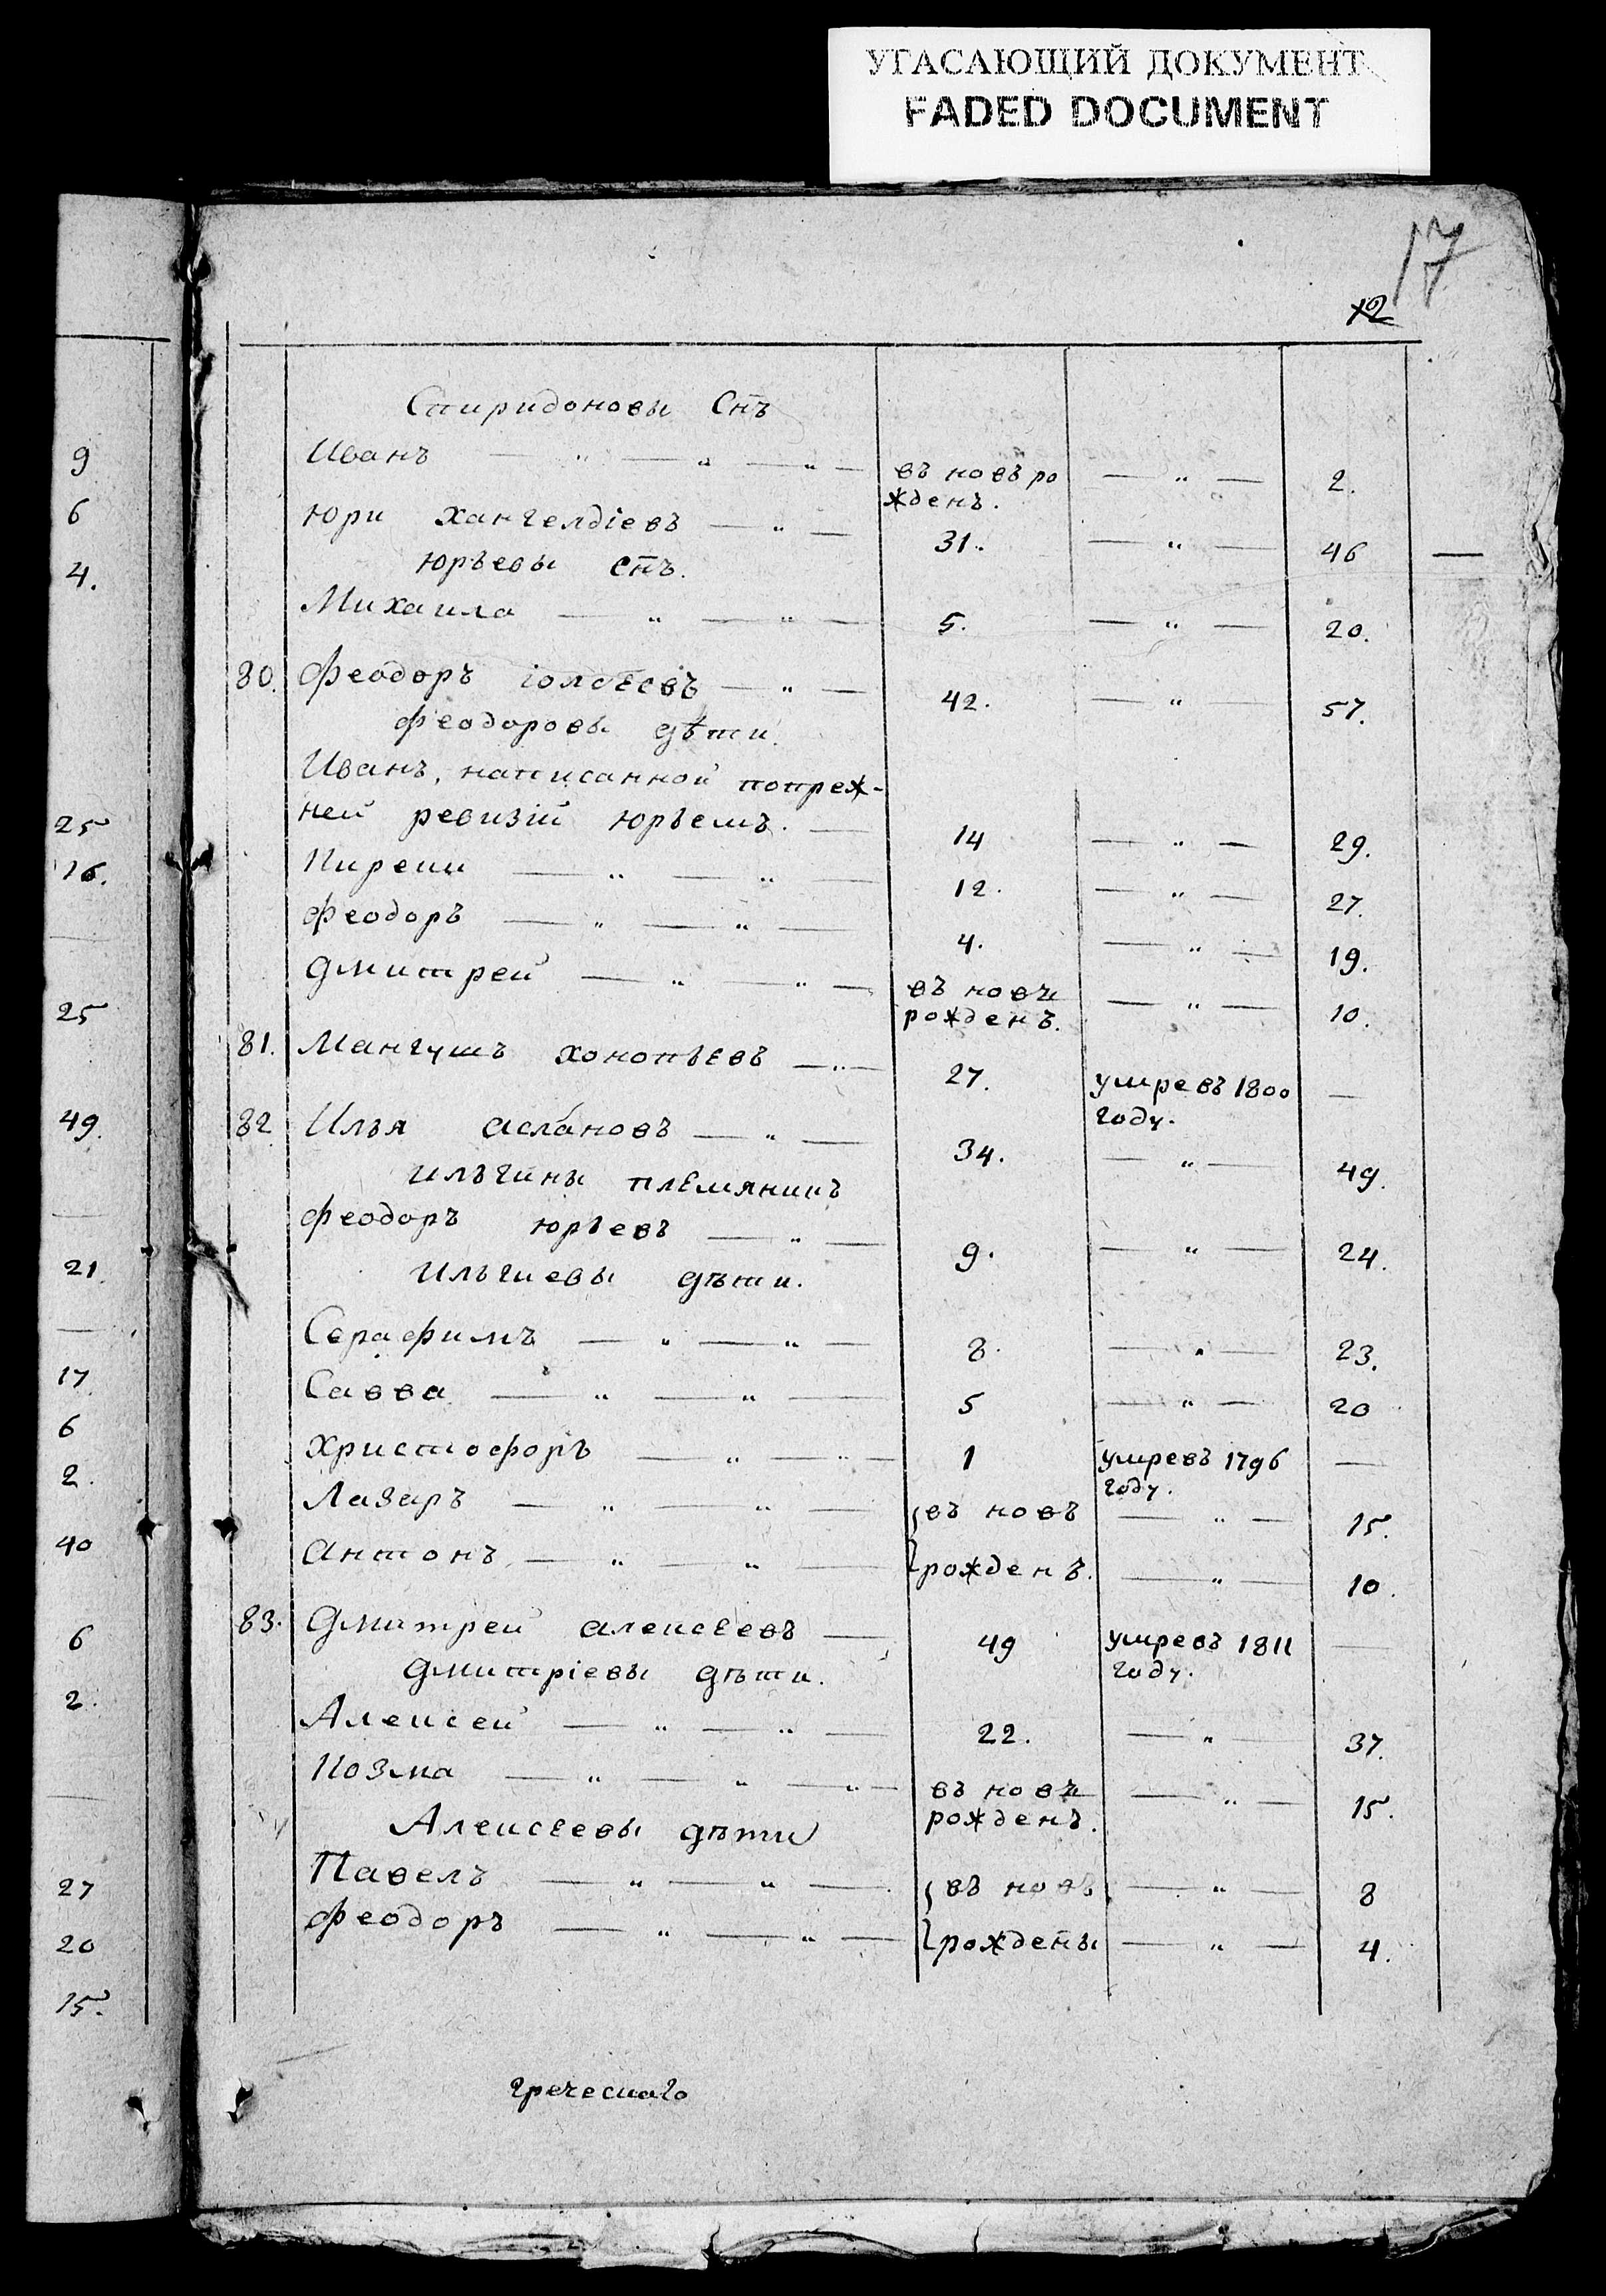 УГАСАЮЩИЙ ДОКУМЕНТ
FADED DOCUMENT
17
12
Спиридоновы Снъ
Иванъ — " — " — " — въ новъ ро — " — 2.
жденъ.
Юри Хангелдіевъ — " — 31. — " — 46 —
Юрьевы снъ.
Михаила — " — " — 5. — " — 20.
80. Феодоръ — " — 42. — " — 57.
Феодоровы дѣти.
Иванъ, написанной попреж-
ней ревизіи Юрьемъ. — 14 — " — 29.
Киреки — " — " — 12. — " — 27.
Феодоръ — " — " — 4. — " — 19.
Дмитрей — " — " — въ новъ — " — 10.
рожденъ.
81. Мангушъ Хонопьевъ — " — 27. умре въ 1800 —
году.
82 Илья Аслановъ — " — 34. — " — 49.
Ильины племяникъ
Феодоръ Юрьевъ — " — 9. — " — 24.
Ильиевы дѣти.
Серафимъ — " — " — 8. — " — 23.
Савва — " — " — 5 — " — 20
Христофоръ — " — " — 1 умре въ 1796 —
году.
Лазарь — " — " — въ новъ — " — 15.
Антонъ — " — " — рожденъ. — " — 10.
83. Дмитрей Алексеевъ — 49 умре въ 1811 —
Дмитріевы дѣти. году.
Алексей — " — " — 22. — " — 37.
Козма — " — " — " — въ новъ — " — 15.
рожденъ.
Алексеевы дѣти
Павелъ — " — " — въ новъ — " — 8
Феодоръ — " — " — рождены — " — 4.
греческаго
9
6
4.
25
16.
25
49.
21.
17
6
2.
40
6
2.
27
20
15.